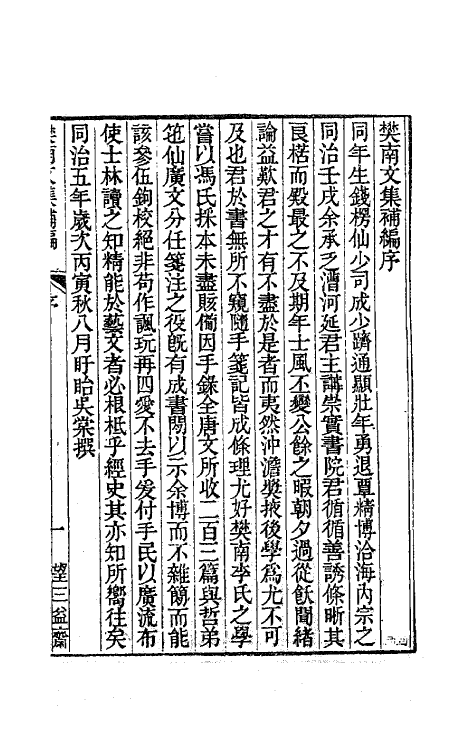 樊南文集補編序
同年生錢楞仙少司成少躋通顯壯年勇退覃精博洽海內宗之
同治壬戌余承乏漕河延君主講崇實書院君循循善誘條晰其
良楛而殿最之不及期年士風丕變公餘之暇朝夕過從飫聞緒
論益歎君之才有不盡於是者而夷然沖澹獎掖後學爲尤不可
及也君於書無所不窺隨手箋記皆成條理尤好樊南李氏之學
嘗以馮氏採本未盡賅備因手錄全唐文所收二百三篇與哲弟
箌仙廣文分任箋注之役旣有成書閒以示余博而不雜簡而能
該參伍鉤校絕非苟作諷玩再四愛不去手爰付手民以廣流布
使士林讀之知精能於藝文者必根柢乎經史其亦知所嚮往矣
同治五年歲次丙寅秋八月盱眙吳棠撰
樊南文集補編
序
一
望三益齋